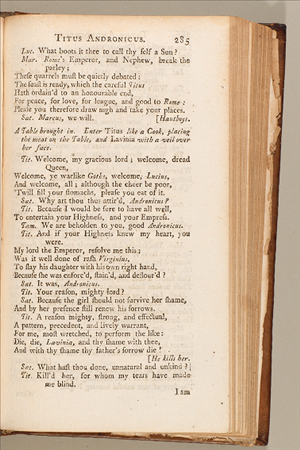 TITUS ANDRONICUS. 285
Luc. What boots it thee to call thy self a Sun?
Mar. Rome's Emperor, and Nephew, break the
parley;
These quarrels must be quietly debated:
The feast is ready, which the careful Titus
Hath ordain'd to an honourable end,
For peace, for love, for league, and good to Rome:
Please you therefore draw nigh and take your places.
Sat. Marcus, we will. [Hautboys.
A Table brought in. Enter Titus like a Cook, placing
the meat on the Table, and Lavinia with a veil over
her face.
Tit. Welcome, my gracious lord; welcome, dread
Queen,
Welcome, ye warlike Goths, welcome, Lucius,
And welcome, all; although the cheer be poor,
'Twill fill your stomachs, please you eat of it.
Sat. Why art thou thus attir'd, Andronicus?
Tit. Because I would be sure to have all well,
To entertain your Highness, and your Empress.
Tam. We are beholden to you, good Andronicus.
Tit. And if your Highness knew my heart, you
were.
My lord the Emperor, resolve me this;
Was it well done of rash Virginius,
To slay his daughter with his own right hand,
Because she was enforc'd, stain'd, and deflour'd?
Sat. It was, Andronicus.
Tit. Your reason, mighty lord?
Sat. Because the girl should not survive her shame,
And by her presence still renew his sorrows.
Tit. A reason mighty, strong, and effectual,
A pattern, precedent, and lively warrant,
For me, most wretched, to perform the like:
Die, die, Lavinia, and thy shame with thee,
And with thy shame thy father's sorrow die!
[He kills her.
Sat. What hast thou done, unnatural and unkind?
Tit. Kill'd her, for whom my tears have made
me blind.
I am